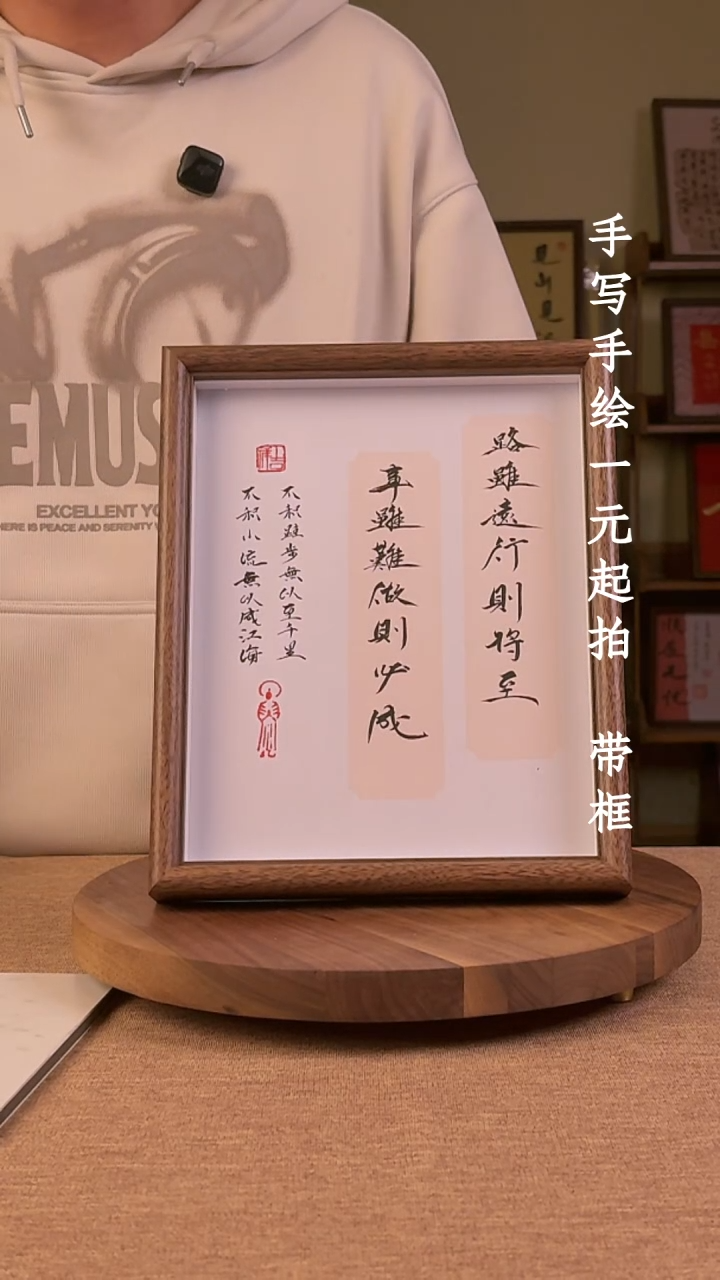 手写手绘一元起拍 带框
路雖遠行則将至
事雖難做則必成
不积跬步無以至千里
不积小流無以成江海
EMUS
EXCELLENT YO
HERE IS PEACE AND SERENITY
見山見